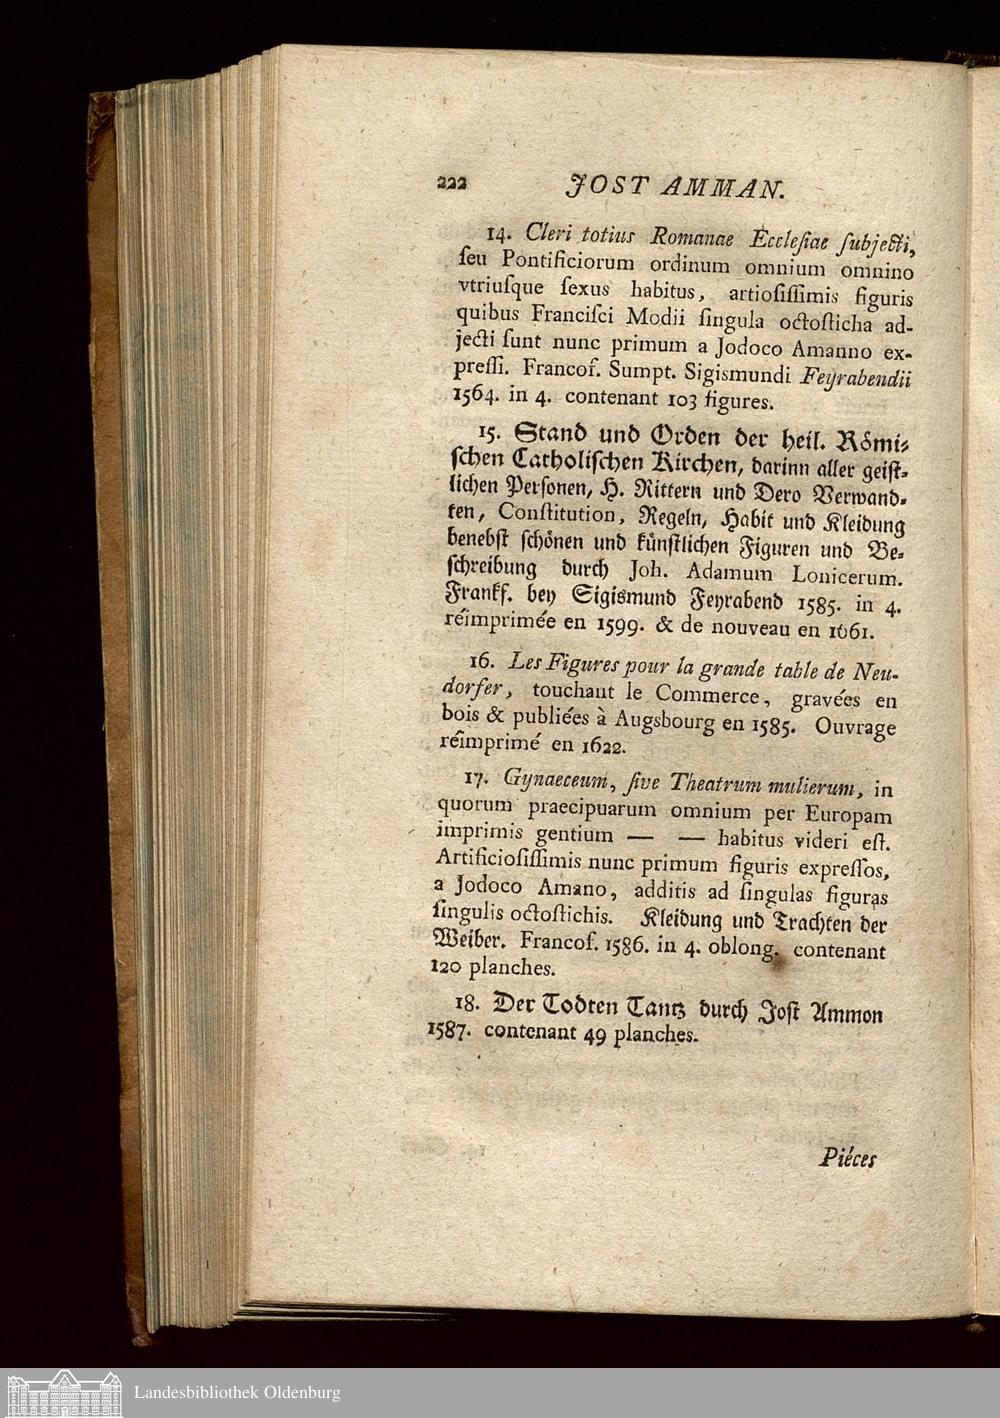 222 JOST AMMAN.
14. Cleri totius Romanae Ecclesiae ſubjecti,
ſeu Pontificiorum ordinum omnium omnino
vtriuſque ſexus habitus, artioſiſſimis figuris
quibus Franciſci Modii ſingula octoſticha ad-
jecti ſunt nunc primum a Jodoco Amanno ex-
preſſi. Francof. Sumpt. Sigismundi Feyrabendii
1564. in 4. contenant 103 figures.
15. Stand und Orden der heil. Römi-
ſchen Catholiſchen Kirchen, darinn aller geiſt-
lichen Perſonen, H. Rittern und Dero Verwand-
ten, Conſtitution, Regeln, Habit und Kleidung
benebſt ſchönen und künſtlichen Figuren und Be-
ſchreibung durch Joh. Adamum Lonicerum.
Frankf. bey Sigismund Feyrabend 1585. in 4.
réimprimée en 1599. & de nouveau en 1661.
16. Les Figures pour la grande table de Neu-
dorfer, touchant le Commerce, gravées en
bois & publiées à Augsbourg en 1585. Ouvrage
réimprimé en 1622.
17. Gynaeceum, ſive Theatrum mulierum, in
quorum praecipuarum omnium per Europam
imprimis gentium — — habitus videri eſt.
Artificioſiſſimis nunc primum figuris expreſſos,
a Jodoco Amano, additis ad ſingulas figuras
ſingulis octoſtichis. Kleidung und Trachten der
Weiber. Francof. 1586. in 4. oblong. contenant
120 planches.
18. Der Todten Tantz durch Joſt Ammon
1587. contenant 49 planches.
Piéces
Landesbibliothek Oldenburg